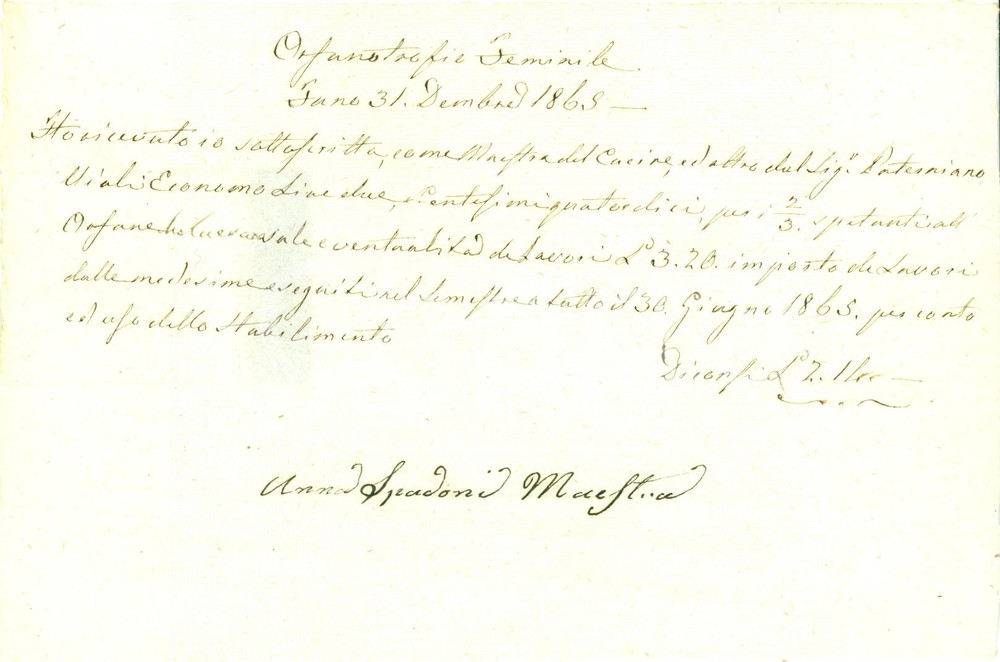 Orfanotrofio Feminile
Fano 31. Dembre 1865 —
Ho ricevuto io sottoscritta, come Maestra del Cucire, ed altro dal Sigr. Paterniano
Economo Lire due, Centesimi quatordici, per i 2/3. spetanti all
Orfane eventualità de Lavori £ 3. 20. importo de Lavori
dalle medesime eseguiti nel Semestre a tutto il 30. Giugno 1865. per conto
ed uso dello Stabilimento
Diconsi £ 2. 14 —
Anna Spadoni Maestra